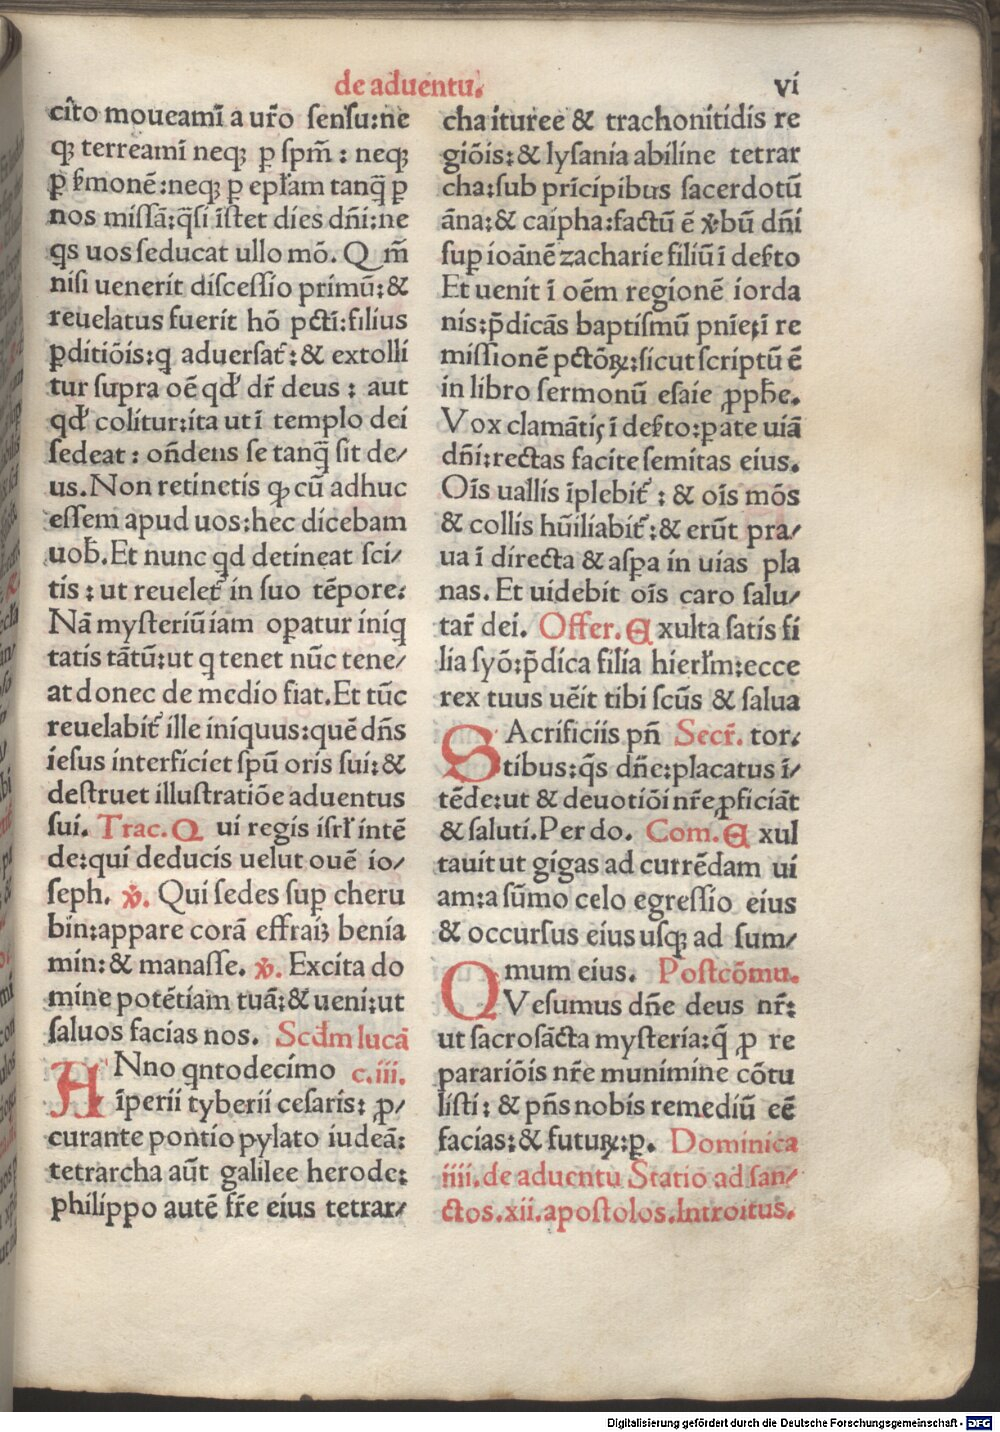 de aduentu.
vi
cito moueamĩ a ur̃o sensu:ne
qꝫ terreamĩ neqꝫ ꝑ spm̃: neqꝫ
ꝑ ẜmonẽ:neqꝫ ꝑ epl̃am tanq̃ ꝑ
nos missã:q̃si ĩstet dies dñi:ne
qs uos seducat ullo mõ. Qm̃
nisi uenerit discessio primũ:&
reuelatus fuerit hõ pctĩ:filius
ꝑditiõis:q aduersat᷑:& extolli
tur supra oẽ qd' dr̃ deus: aut
qd' colitur:ita ut ĩ templo dei
sedeat: oñdens se tanq̃ sit de/
us.Non retinetis ꝙ cũ adhuc
essem apud uos:hec dicebam
uob̃.Et nunc qd detineat sci/
tis: ut reuelet᷑ in suo tẽpore:
Nã mysteriũ iam oꝑatur iniq
tatis tãtũ:ut q tenet nũc tene/
at donec de medio fiat.Et tũc
reuelabit᷑ ille iniquus:quẽ dñs
iesus interficiet spũ oris sui:&
destruet illustratiõe aduentus
sui. Trac. Qui regis isrl̃ intẽ
de:qui deducis uelut ouẽ io/
seph. ℣. Qui sedes suꝑ cheru
bin:appare corã effraiȝ benia
min:& manasse. ℣. Excita do
mine potẽtiam tuã:& ueni:ut
saluos facias nos. Scd̃m lucã
ANno qntodecimo c.iii.
ĩperii tyberii cesaris: ꝓ/
curante pontio pylato iudeã:
tetrarcha aũt galilee herode:
philippo autẽ fr̃e eius tetrar/
cha ituree & trachonitidis re
giõis:& lysania abiline tetrar
cha:sub prĩcipibus sacerdotũ
ãna:& caipha:factũ ẽ ℣bũ dñi
suꝑ ioãnẽ zacharie filiũ ĩ deẜto
Et uenit ĩ oẽm regionẽ iorda
nis:p̃dicãs baptismũ pnĩẽ:ĩ re
missionẽ pctõꝝ:sicut scriptũ ẽ
in libro sermonũ esaie ꝓph̃e.
Vox clamãtis ĩ deẜto:ꝑate uiã
dñi:rectas facite semitas eius.
Oĩs uallis ĩplebit᷑: & oĩs mõs
& collis hũiliabit᷑:& erũt pra/
ua ĩ directa & asꝑa in uias pla
nas. Et uidebit oĩs caro salu/
tar̃ dei. Offer. Exulta satis fi
lia syõ:p̃dica filia hierl̃m:ecce
rex tuus uẽit tibi scũs & salua
SAcrificiis pñ Secr̃. tor.
tibus:q̃s dñe:placatus ĩ/
tẽde:ut & deuotiõi nr̃e ꝓficiãt
& saluti.Per do. Com. Exul
tauit ut gigas ad currẽdam ui
am:a sũmo celo egressio eius
& occursus eius usqꝫ ad sum/
mum eius. Postcõmu.
QVesumus dñe deus nr̃:
ut sacrosãcta mysteria:q̃ ꝓ re
parariõis nr̃e munimine cõtu
listi: & pñs nobis remediũ eẽ
facias:& futuꝝ:ꝑ. Dominica
iiii.de aduentu Statio ad san/
ctos.xii.apostolos.Introitus.
Digitalisierung gefördert durch die Deutsche Forschungsgemeinschaft - DFG